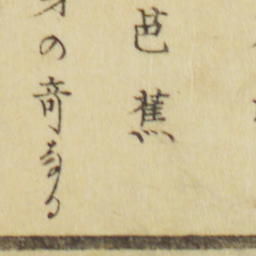 芭蕉
の奇なる